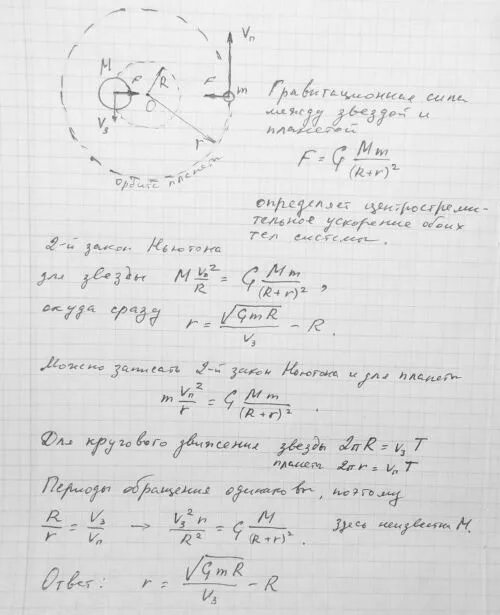 M F R F m Vп
O
V₃ r
орбита планеты
Гравитационная сила
между звездой и
планетой
F = G Mm/(R+r)²
определяет центростреми-
тельное ускорение обоих
тел системы.
2-й закон Ньютона
для звезды M Vп²/R = G Mm/(R+r)² ,
окуда сразу r = √(GmR)/V₃ − R .
Можно записать 2-й закон Ньютона и для планеты
m Vп²/r = G Mm/(R+r)² .
Для кругового движения звезды 2πR = V₃T
планеты 2πr = VпT
Периоды обращения одинаковы, поэтому
R/r = V₃/Vп → V₃² r/R² = G M/(R+r)² . здесь неизвестна M.
Ответ: r = √(GmR)/V₃ − R